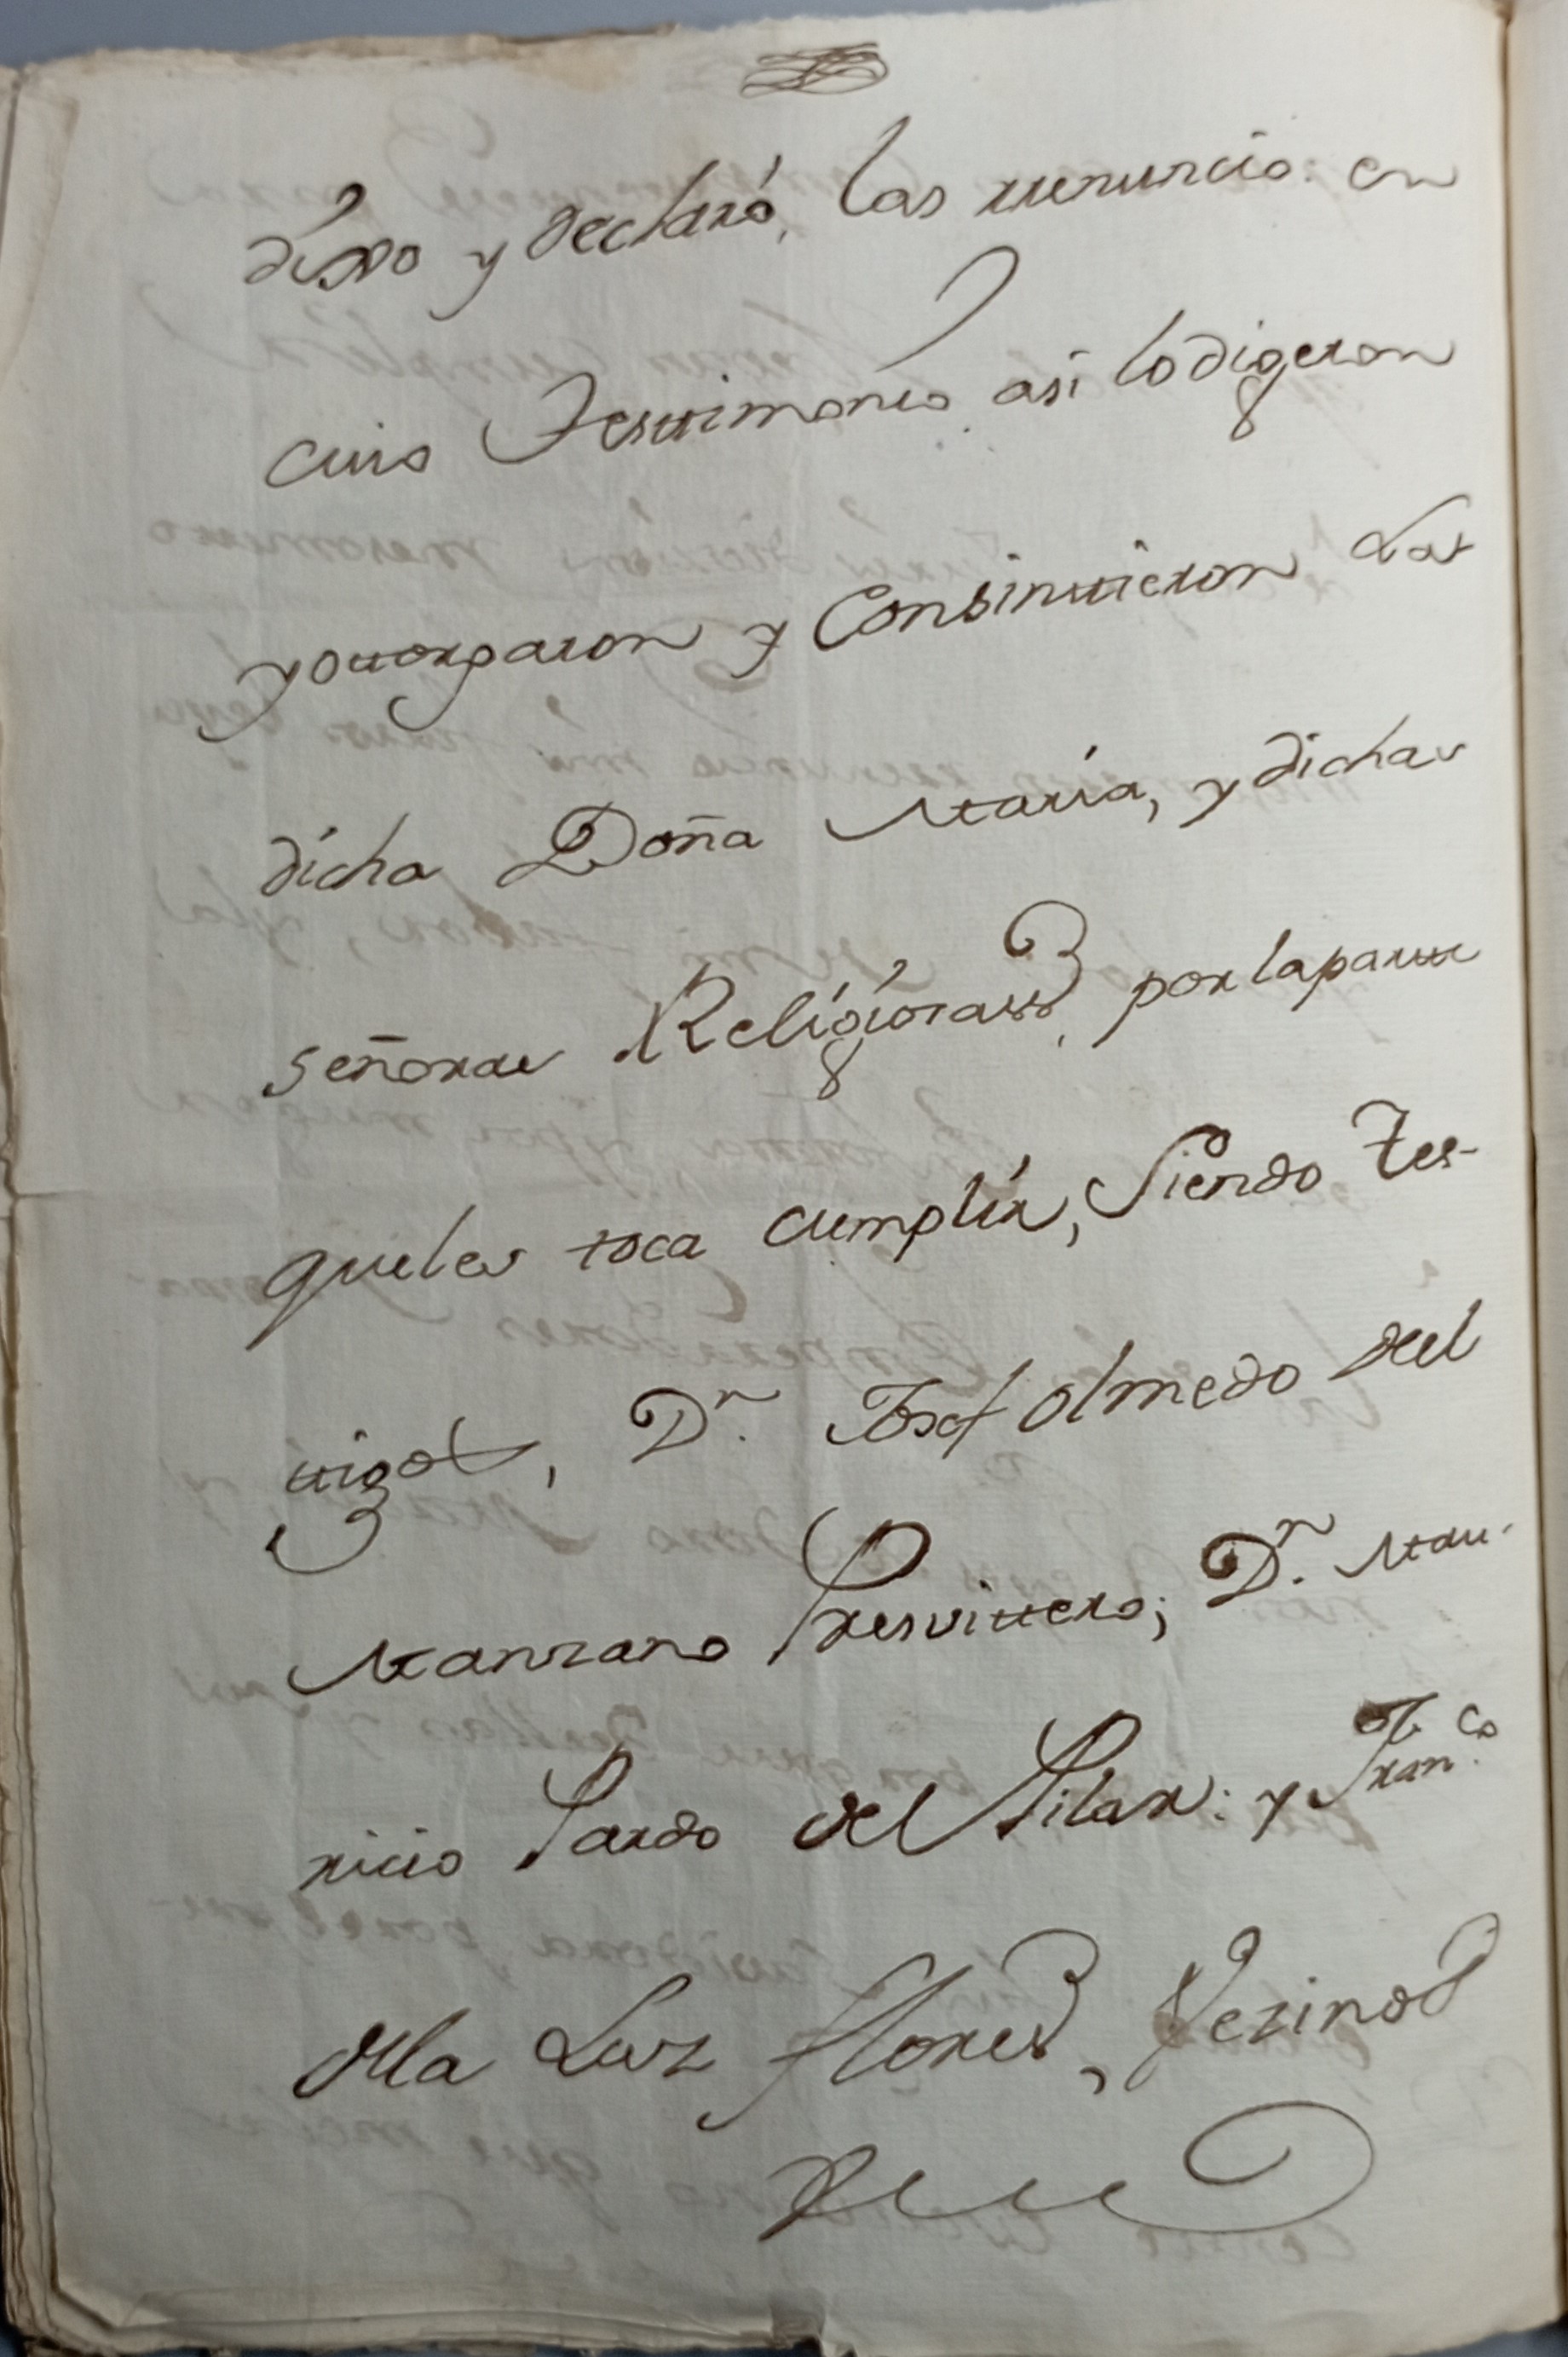 dixo y declaró, las renuncio: en
cuio Testimonio asi lo digeron
y otorgaron y Consintieron Las
dicha Doña Maria, y dichas
señoras Religiosas, por la parte
que les toca cumplir, Siendo Tes-
tigos, Dn. Josef Olmedo del
Manzano Presvitero; Dn. Mau-
ricio Pardo del Pilar: y Franco.
dela Luz flores, Vezinos